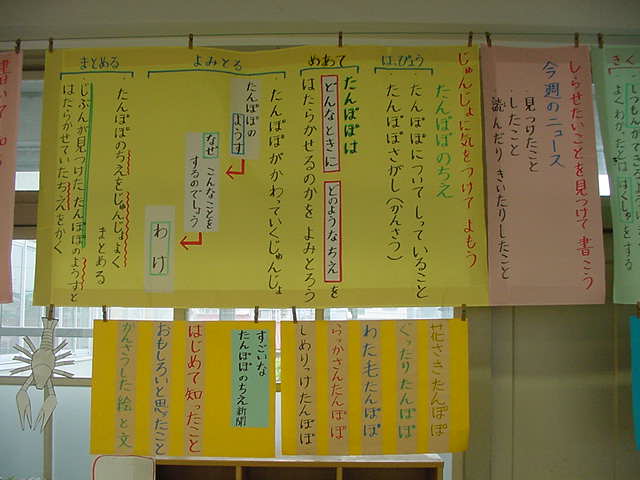 しらせたいことを見つけて書こう
今週のニュース
・見つけたこと
・したこと
・読んだりきいたりしたこと
じゅんじょに気をつけてよもう
たんぽぽのちえ
はっぴょう
たんぽぽについてしっていること
たんぽぽさがし(かんさつ)
めあて
たんぽぽは
どんなときに どのようなちえを
はたらかせるのかをよみとろう
よみとる
・たんぽぽがかわっていくじゅんじょ
・たんぽぽの
ようす
なぜ こんなことを
するのでしょう
わけ
まとめる
・たんぽぽのちえをじゅんじょよく
まとめる
・じぶんが見つけたたんぽぽのようすと
はたらかせていたちえをかく
花さきたんぽぽ
ぐったりたんぽぽ
わた毛たんぽぽ
らっかさんたんぽぽ
しめりっけたんぽぽ
すごいな
たんぽぽのちえ新聞
はじめて知ったこと
おもしろいと思ったこと
かんさつした絵と文